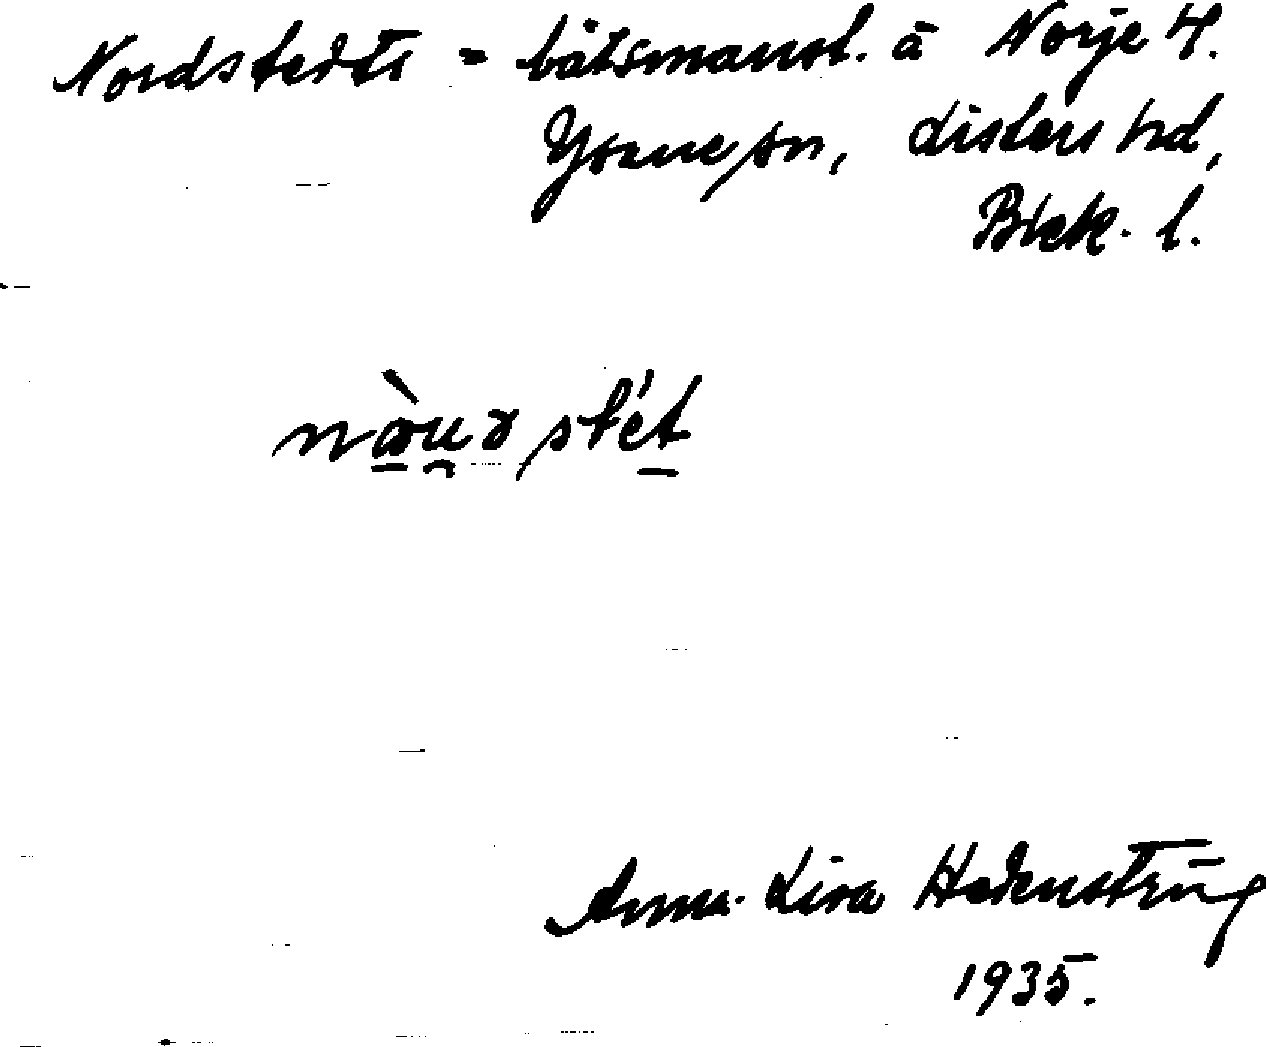 Nordstedts - båtsmanst. å Norje 4.
Ysane sn, Listers hd,
Blek. l.
Anna-Lisa Hedenstrüg
1935.